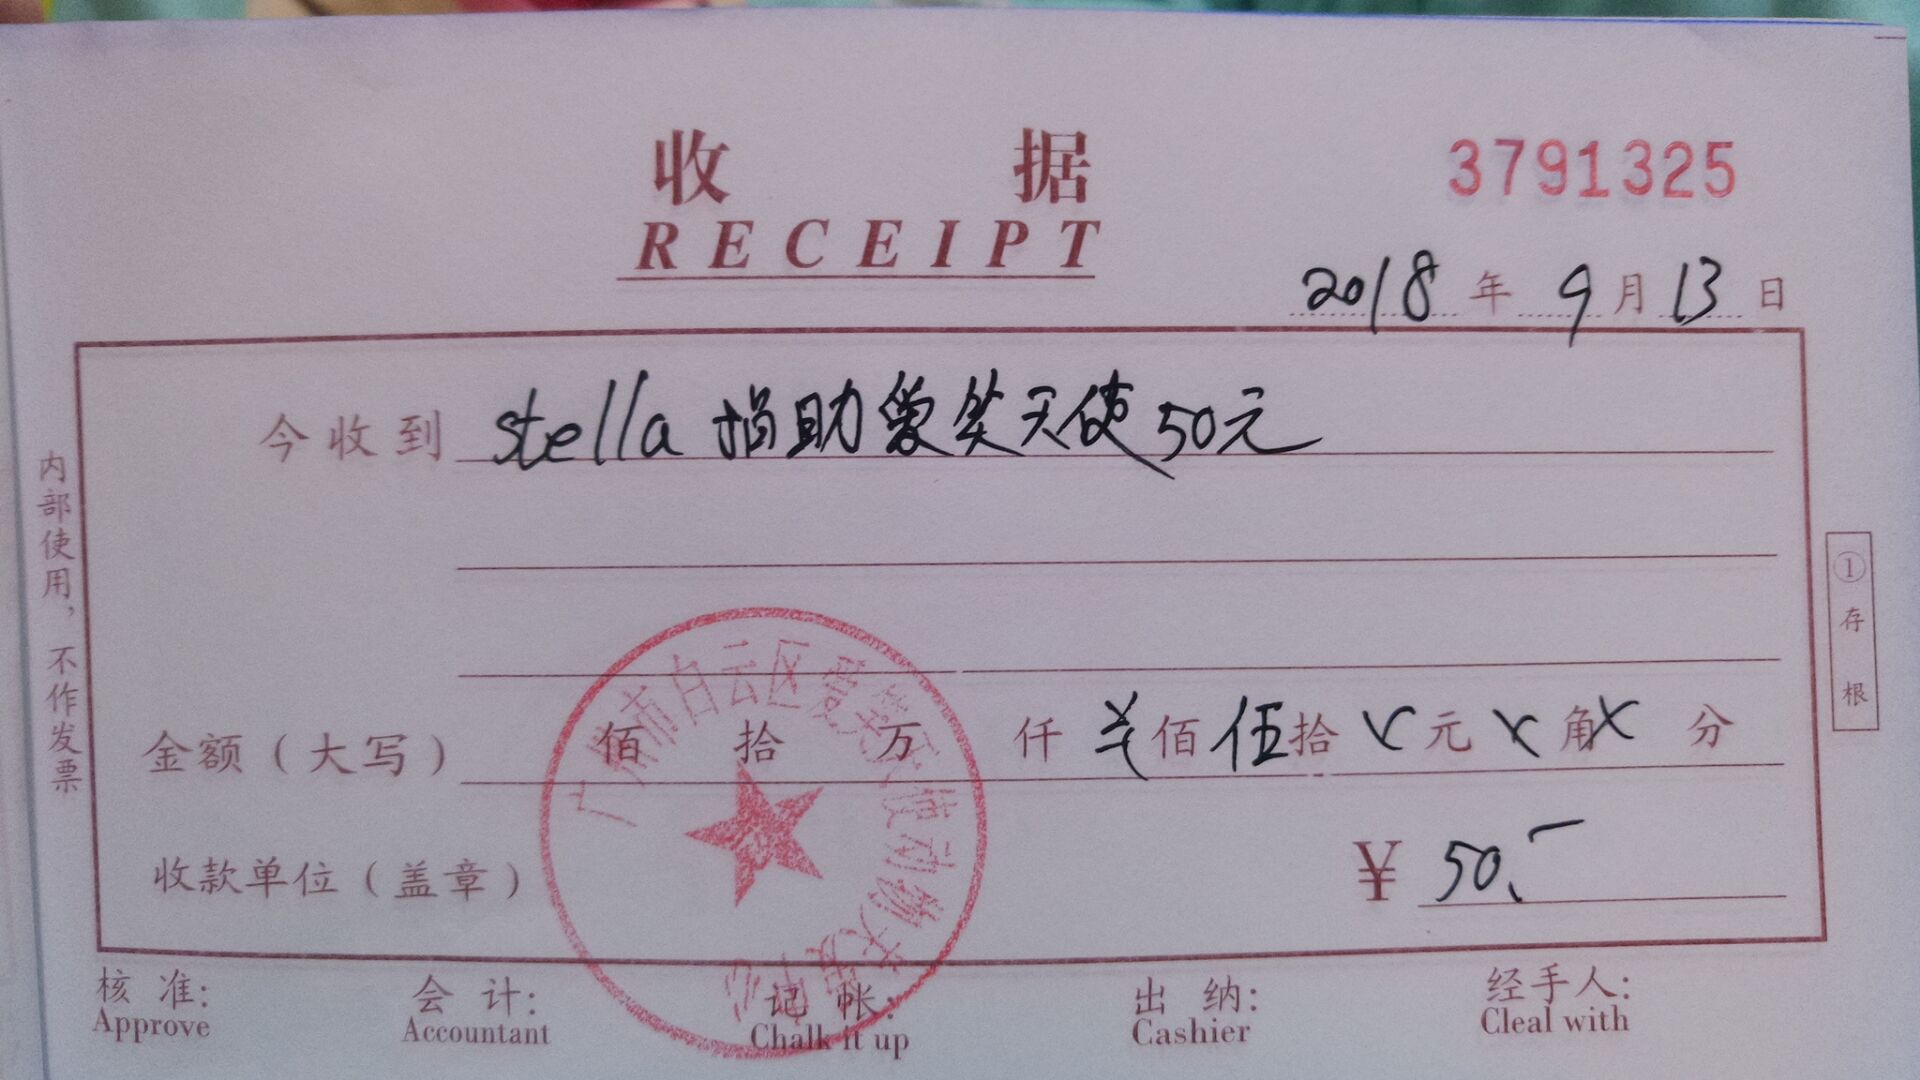 收 据
3791325
RECEIPT
2018 年 9 月 13 日
今收到 stella 捐助爱笑天使50元
金额（大写） 佰 拾 万 仟 ¥ 佰 伍 拾 元 角 分
收款单位（盖章） ¥ 50.-
核 准: 会 计: 记 帐: 出 纳: 经手人:
Approve Accountant Chalk it up Cashier Cleal with
内部使用，不作发票
① 存根
广州市白云区爱笑天使动物关爱中心